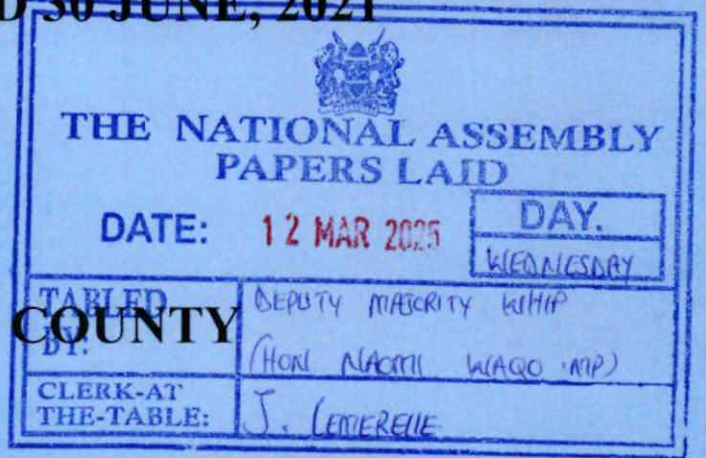 D 30 JUNE, 2021
THE NATIONAL ASSEMBLY
PAPERS LAID
DATE: 12 MAR 2025
DAY.
WEDNESDAY
TABLED BY:
DEPUTY MAJORITY WHIP
COUNTY
(HON NAOMI WAQO MP)
CLERK-AT
THE-TABLE:
J. LEMERELLE